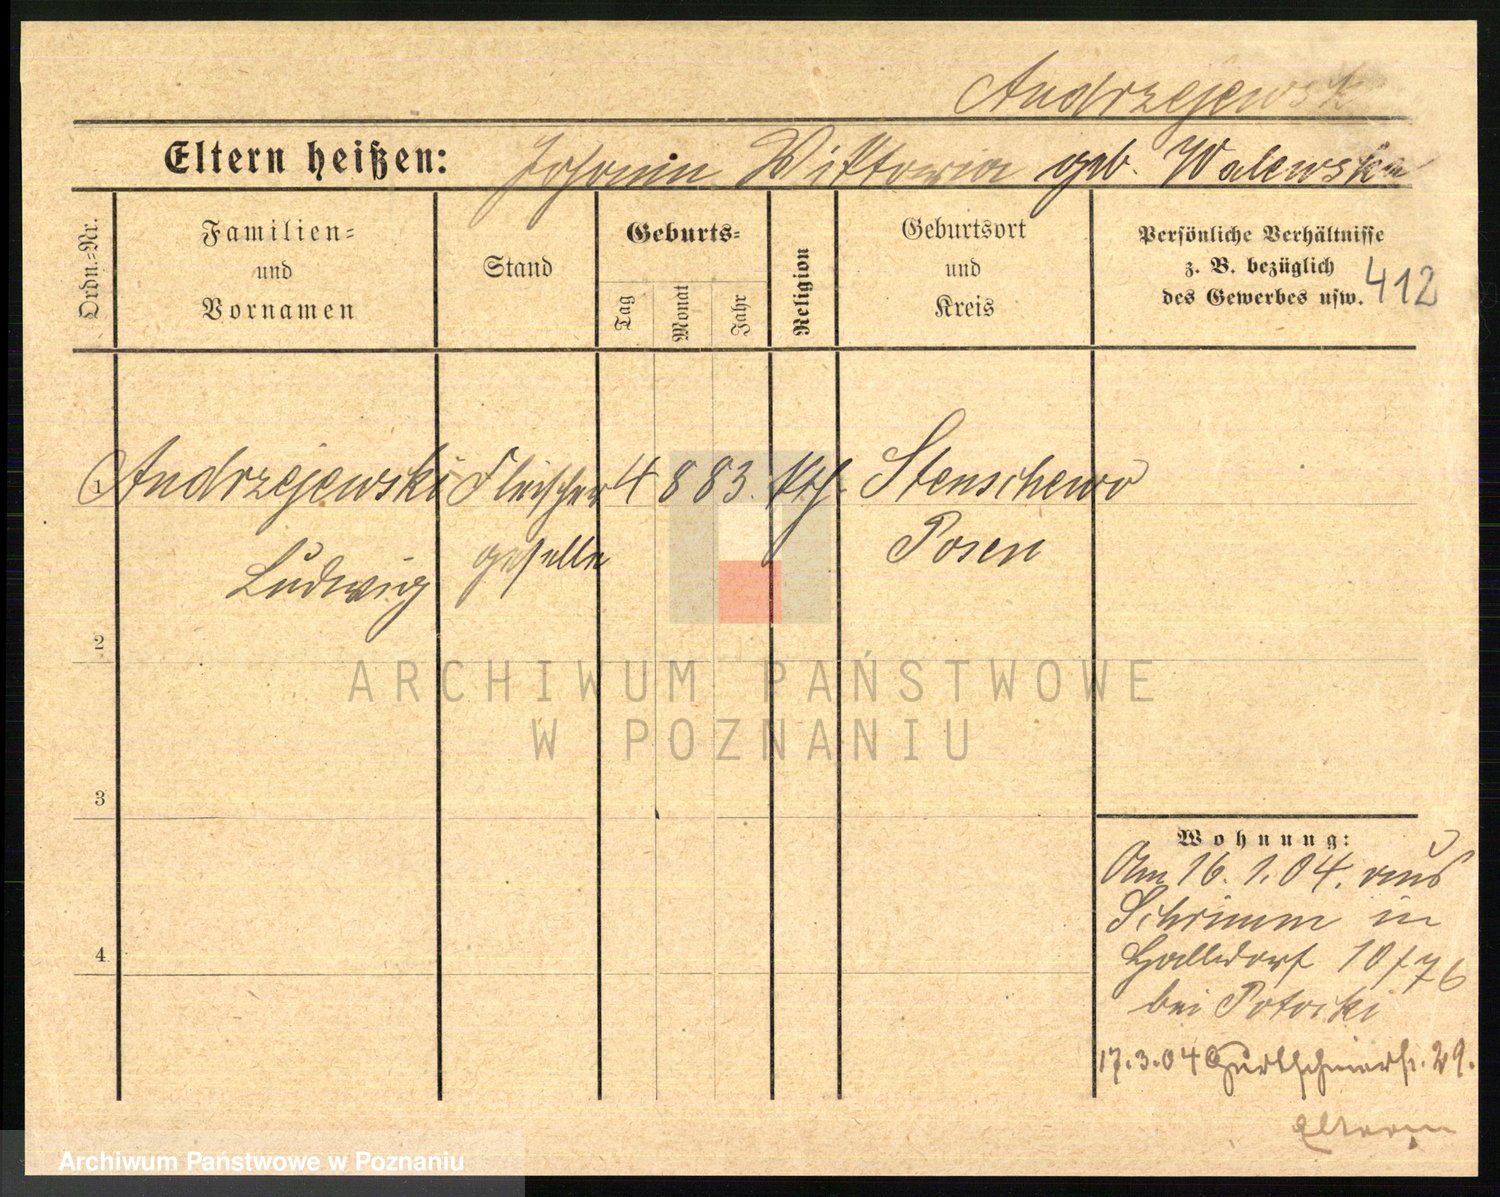 Andrzejewsk
Eltern heißen: Johann Wiktoria geb. Walewska
Ordn.-Nr.
Familien-
und
Vornamen
Stand
Geburts-
Tag
Monat
Jahr
Religion
Geburtsort
und
Kreis
Persönliche Verhältnisse
z. B. bezüglich
des Gewerbes usw. 412
1 Andrzejewski Fleischer 4 8 83. kth. Stenschewo
Ludwig geselle Posen
2
ARCHIWUM PAŃSTWOWE
W POZNANIU
3
Wohnung:
Am 16. 1. 04. aus
Schrimm in
Halldorf 10/76
4
bei Potocki
17.3.04 29.
Eltern
Archiwum Państwowe w Poznaniu